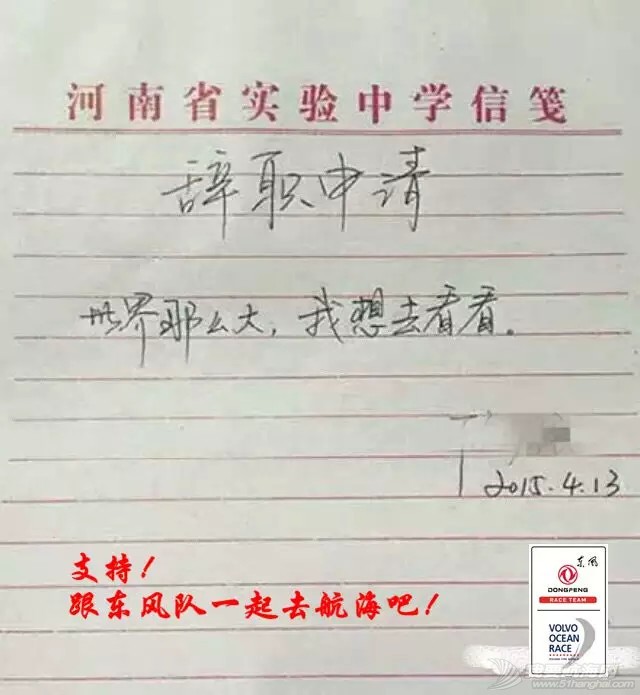 河南省实验中学信笺
辞职申请
世界那么大，我想去看看。
2015.4.13
支持！
跟东风队一起去航海吧！
东风
DONGFENG
RACE TEAM
VOLVO
OCEAN
RACE
www.51hanghai.com